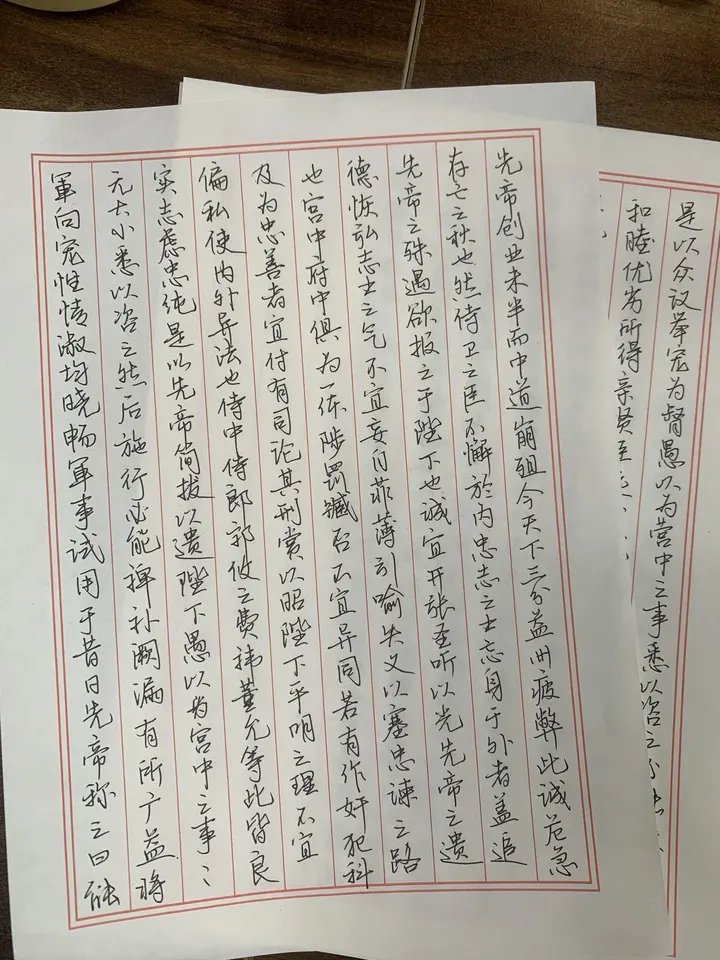 先帝创业未半而中道崩殂今天下三分益州疲弊此诚危急
存亡之秋也然侍卫之臣不懈於内忠志之士忘身于外者盖追
先帝之殊遇欲报之于陛下也诚宜开张圣听以光先帝之遗
德恢弘志士之气不宜妄自菲薄引喻失义以塞忠谏之路
也宫中府中俱为一体陟罚臧否不宜异同若有作奸犯科
及为忠善者宜付有司论其刑赏以昭陛下平明之理不宜
偏私使内外异法也侍中侍郎郭攸之费祎董允等此皆良
实志虑忠纯是以先帝简拔以遗陛下愚以为宫中之事ミ
无大小悉以咨之然后施行必能裨补阙漏有所广益将
軍向宠性情淑均晓畅軍事试用于昔日先帝称之曰能
是以众议举宠为督愚以为营中之事悉以咨之
和睦优劣所得亲贤